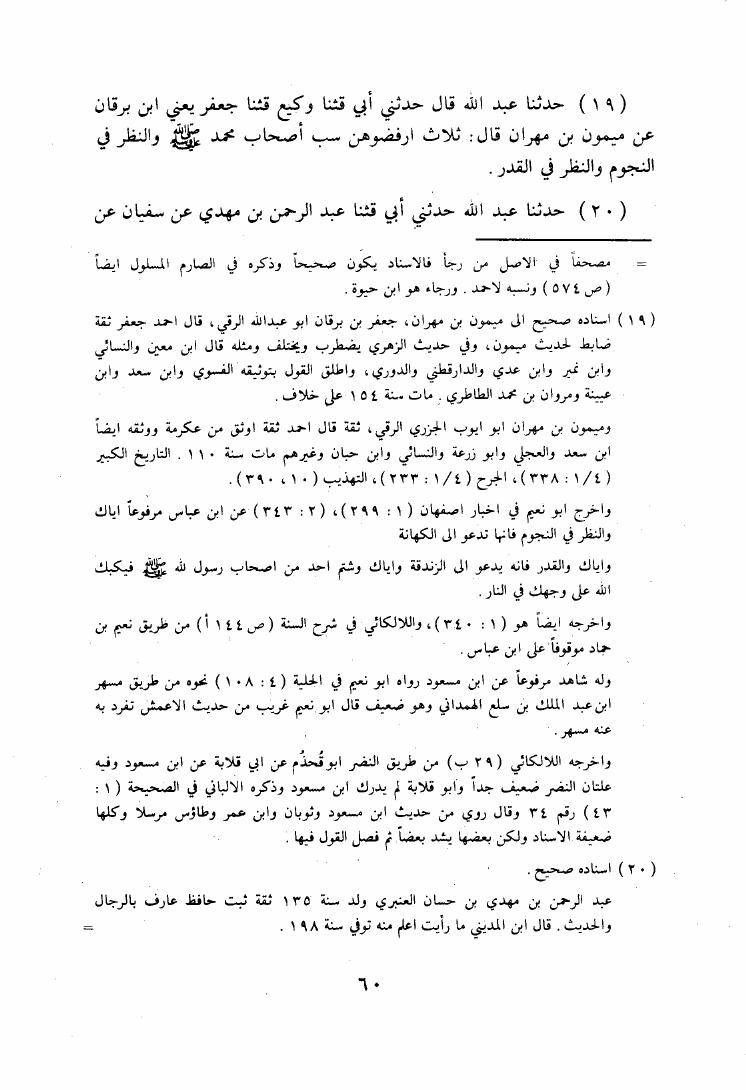 (١٩) حدثنا عبد الله قال حدثني أبي قثنا وكيع قثنا جعفر يعني ابن برقان
عن ميمون بن مهران قال: ثلاث ارفضوهن سب أصحاب محمد ﷺ والنظر في
النجوم والنظر في القدر.
(٢٠) حدثنا عبد الله حدثني أبي قثنا عبد الرحمن بن مهدي عن سفيان عن
= مصحفاً في الاصل من رجأ فالاسناد يكون صحيحاً وذكره في الصارم المسلول ايضاً
(ص ٥٧٤) ونسبه لاحمد. ورجاء هو ابن حيوة.
(١٩) اسناده صحيح الى ميمون بن مهران، جعفر بن برقان ابو عبدالله الرقي، قال احمد جعفر ثقة
ضابط لحديث ميمون، وفي حديث الزهري يضطرب ويختلف ومثله قال ابن معين والنسائي
وابن نمير وابن عدي والدارقطني والدوري، واطلق القول بتوثيقه الفسوي وابن سعد وابن
عيينة ومروان بن محمد الطاطري. مات سنة ١٥٤ على خلاف.
وميمون بن مهران ابو ايوب الجزري الرقي، ثقة قال احمد ثقة اوثق من عكرمة ووثقه ايضاً
ابن سعد والعجلي وابو زرعة والنسائي وابن حبان وغيرهم مات سنة ١١٠. التاريخ الكبير
(١/٤: ٣٣٨)، الجرح (١/٤: ٢٣٣)، التهذيب (١٠، ٣٩٠).
واخرج ابو نعيم في اخبار اصفهان (١: ٢٩٩)، (٢: ٣٤٣) عن ابن عباس مرفوعاً اياك
والنظر في النجوم فانها تدعو الى الكهانة
واياك والقدر فانه يدعو الى الزندقة واياك وشتم احد من اصحاب رسول لله ﷺ فيكبك
الله على وجهك في النار.
واخرجه ايضاً هو (١: ٣٤٠)، واللالكائي في شرح السنة (ص ١٤٤ أ) من طريق نعيم بن
حماد موقوفاً على ابن عباس.
وله شاهد مرفوعاً عن ابن مسعود رواه ابو نعيم في الحلية (٤: ١٠٨) نحوه من طريق مسهر
ابن عبد الملك بن سلع الهمداني وهو ضعيف قال ابو نعيم غريب من حديث الاعمش تفرد به
عنه مسهر.
واخرجه اللالكائي (٢٩ ب) من طريق النضر ابو قُحذُم عن ابي قلابة عن ابن مسعود وفيه
علتان النضر ضعيف جداً وأبو قلابة لم يدرك ابن مسعود وذكره الالباني في الصحيحة (١:
٤٣) رقم ٣٤ وقال روي من حديث ابن مسعود وثوبان وابن عمر وطاؤس مرسلا وكلها
ضعيفة الاسناد ولكن بعضها يشد بعضاً ثم فصل القول فيها.
(٢٠) اسناده صحيح.
عبد الرحمن بن مهدي بن حسان العنبري ولد سنة ١٣٥ ثقة ثبت حافظ عارف بالرجال
والحديث. قال ابن المديني ما رأيت اعلم منه توفي سنة ١٩٨. =
٦٠